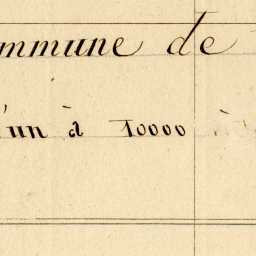 ommune de
'un à 10000 à